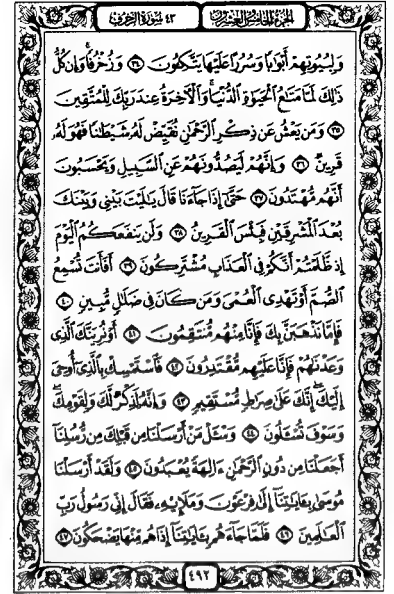 الجزء الخامس والعشرون
٤٣ سورة الزخرف
وَلِبُيُوتِهِمْ أَبْوَٰبًا وَسُرُرًا عَلَيْهَا يَتَّكِـُٔونَ ٣٤ وَزُخْرُفًا ۚ وَإِن كُلُّ
ذَٰلِكَ لَمَّا مَتَٰعُ ٱلْحَيَوٰةِ ٱلدُّنْيَا ۚ وَٱلْـَٔاخِرَةُ عِندَ رَبِّكَ لِلْمُتَّقِينَ
٣٥ وَمَن يَعْشُ عَن ذِكْرِ ٱلرَّحْمَٰنِ نُقَيِّضْ لَهُۥ شَيْطَٰنًا فَهُوَ لَهُۥ
قَرِينٌ ٣٦ وَإِنَّهُمْ لَيَصُدُّونَهُمْ عَنِ ٱلسَّبِيلِ وَيَحْسَبُونَ
أَنَّهُم مُّهْتَدُونَ ٣٧ حَتَّىٰٓ إِذَا جَآءَنَا قَالَ يَٰلَيْتَ بَيْنِى وَبَيْنَكَ
بُعْدَ ٱلْمَشْرِقَيْنِ فَبِئْسَ ٱلْقَرِينُ ٣٨ وَلَن يَنفَعَكُمُ ٱلْيَوْمَ
إِذ ظَّلَمْتُمْ أَنَّكُمْ فِى ٱلْعَذَابِ مُشْتَرِكُونَ ٣٩ أَفَأَنتَ تُسْمِعُ
ٱلصُّمَّ أَوْ تَهْدِى ٱلْعُمْىَ وَمَن كَانَ فِى ضَلَٰلٍ مُّبِينٍ ٤٠
فَإِمَّا نَذْهَبَنَّ بِكَ فَإِنَّا مِنْهُم مُّنتَقِمُونَ ٤١ أَوْ نُرِيَنَّكَ ٱلَّذِى
وَعَدْنَٰهُمْ فَإِنَّا عَلَيْهِم مُّقْتَدِرُونَ ٤٢ فَٱسْتَمْسِكْ بِٱلَّذِىٓ أُوحِىَ
إِلَيْكَ ۖ إِنَّكَ عَلَىٰ صِرَٰطٍ مُّسْتَقِيمٍ ٤٣ وَإِنَّهُۥ لَذِكْرٌ لَّكَ وَلِقَوْمِكَ ۖ
وَسَوْفَ تُسْـَٔلُونَ ٤٤ وَسْـَٔلْ مَنْ أَرْسَلْنَا مِن قَبْلِكَ مِن رُّسُلِنَآ
أَجَعَلْنَا مِن دُونِ ٱلرَّحْمَٰنِ ءَالِهَةً يُعْبَدُونَ ٤٥ وَلَقَدْ أَرْسَلْنَا
مُوسَىٰ بِـَٔايَٰتِنَآ إِلَىٰ فِرْعَوْنَ وَمَلَإِي۟هِۦ فَقَالَ إِنِّى رَسُولُ رَبِّ
ٱلْعَٰلَمِينَ ٤٦ فَلَمَّا جَآءَهُم بِـَٔايَٰتِنَآ إِذَا هُم مِّنْهَا يَضْحَكُونَ ٤٧
٤٩٢